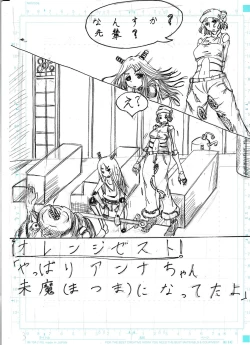 なんすか?
先輩?
え?
オレンジゼスト!
「やっぱり アンナちゃん
未魔(まつま)になってたよ」